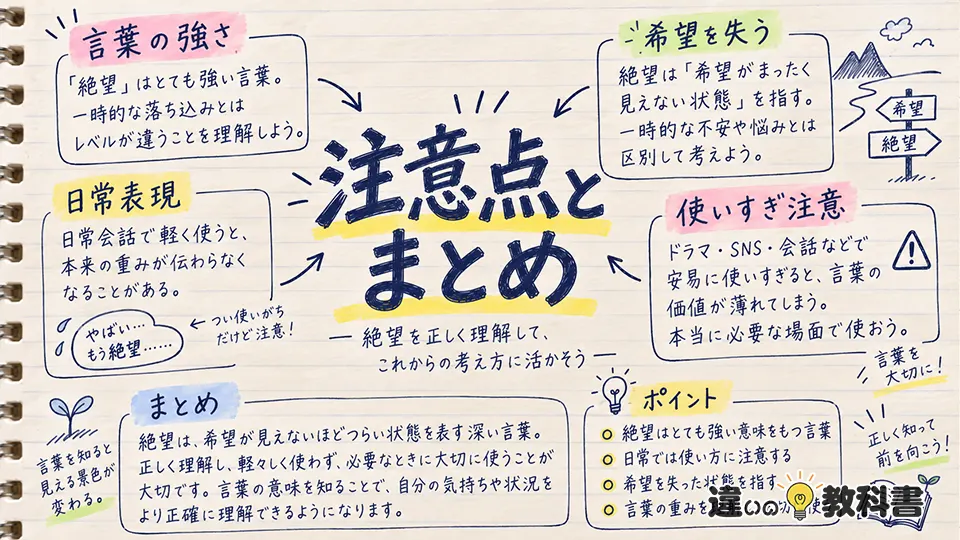 言葉の強さ
「絶望」はとても強い言葉。
一時的な落ち込みとは
レベルが違うことを理解しよう。
希望を失う
絶望は「希望がまったく
見えない状態」を指す。
一時的な不安や悩みとは
区別して考えよう。
希望
絶望
注意点と
まとめ
絶望を正しく理解して、
これからの考え方に活かそう
日常表現
日常会話で軽く使うと、
本来の重みが伝わらなく
なることがある。
やばい…
もう絶望……
つい使いがち
だけど注意!
使いすぎ注意
ドラマ・SNS・会話などで
安易に使いすぎると、言葉の
価値が薄れてしまう。
本当に必要な場面で使おう。
言葉を
大切に!
言葉を知ると
見える景色が
変わる。
まとめ
絶望は、希望が見えないほどつらい状態を表す深い言葉。
正しく理解し、軽々しく使わず、必要なときに大切に使うことが
大切です。言葉の意味を知ることで、自分の気持ちや状況を
より正確に理解できるようになります。
ポイント
絶望はとても強い意味をもつ言葉
日常では使い方に注意する
希望を失った状態を指す
言葉の重みを
正しく知って
前を向こう!
違いの教科書